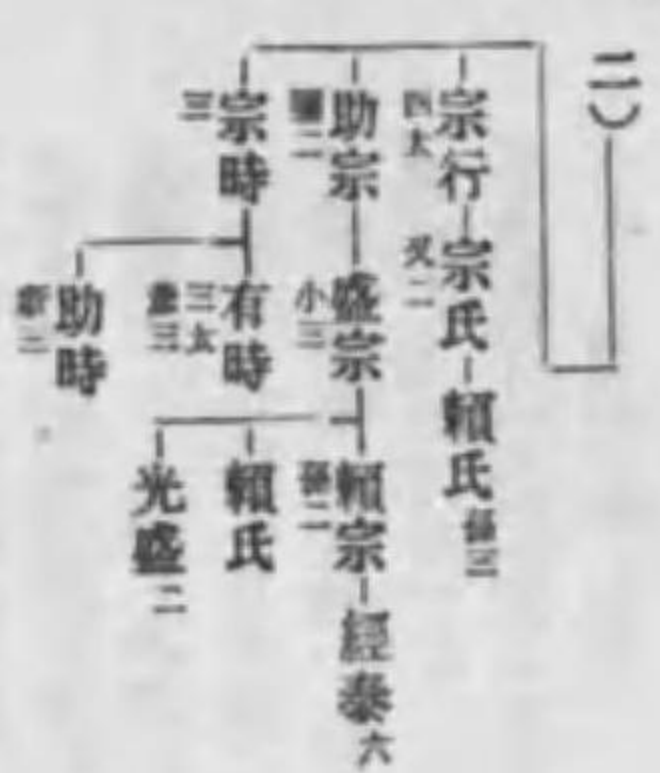 二)
宗行
四太
宗氏
又二
頼氏 孫三
助宗
彌二
盛宗
小三
頼宗
孫二
經泰 六
頼氏
光盛 二
宗時
三
有時
三太
助時
新三